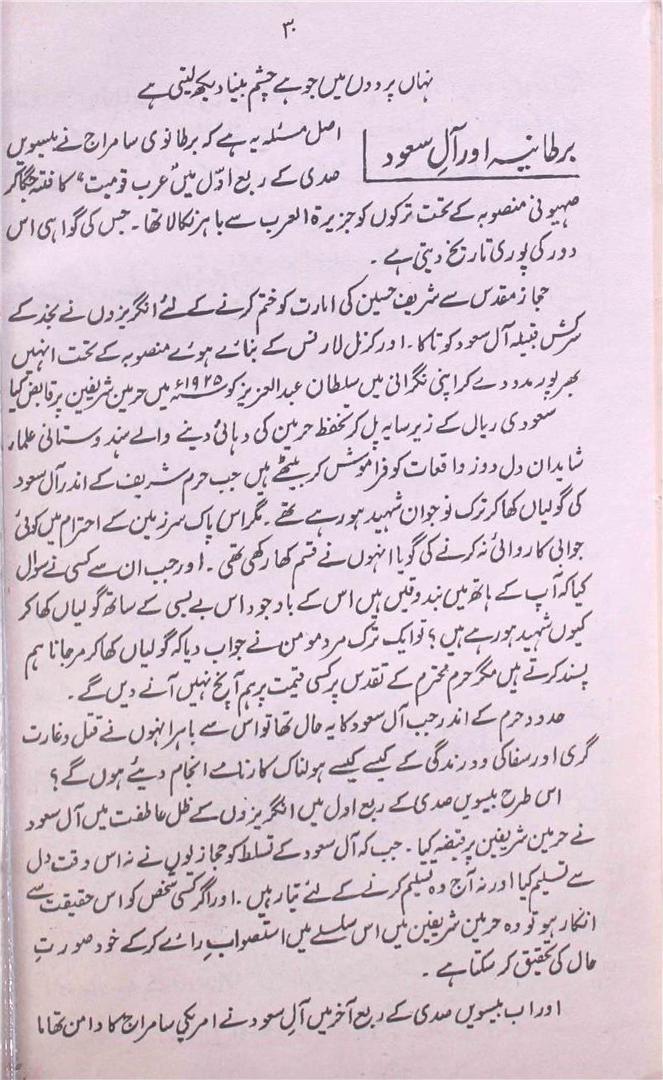 ۳۰
نہاں پردوں میں جو ہے چشم بینا دیکھ لیتی ہے
برطانیہ اور آلِ سعود
اصل مسئلہ یہ ہے کہ برطانوی سامراج نے بیسویں
صدی کے ربع اوّل میں "عرب قومیت" کا فتنہ جگا کر
صہیونی منصوبہ کے تحت ترکوں کو جزیرۃ العرب سے باہر نکالا تھا۔ جس کی گواہی اس
دور کی پوری تاریخ دیتی ہے۔
حجاز مقدس سے شریف حسین کی امارت کو ختم کرنے کے لئے انگریزوں نے نجد کے
سرکش قبیلہ آل سعود کو تاکا۔ اور کرنل لارنس کے بنائے ہوئے منصوبہ کے تحت انہیں
بھرپور مدد دے کر اپنی نگرانی میں سلطان عبدالعزیز کو ۱۹۲۵ء میں حرمین شریفین پر قابض کیا
سعودی ریال کے زیر سایہ پل کر تحفظ حرمین کی دہائی دینے والے ہندوستانی علماء
شاید ان دل دوز واقعات کو فراموش کر بیٹھے ہیں جب حرم شریف کے اندر آل سعود
کی گولیاں کھا کر ترک نوجوان شہید ہو رہے تھے۔ مگر اس پاک سرزمین کے احترام میں کوئی
جوابی کاروائی نہ کرنے کی گویا انہوں نے قسم کھا رکھی تھی۔ اور جب ان سے کسی نے سوال
کیا کہ آپ کے ہاتھ میں بندوقیں ہیں اس کے باوجود اس بے بسی کے ساتھ گولیاں کھا کر
کیوں شہید ہو رہے ہیں؟ تو ایک ترک مرد مومن نے جواب دیا کہ گولیاں کھا کر مر جانا ہم
پسند کرتے ہیں مگر حرم محترم کے تقدس پر کسی قیمت پر ہم آنچ نہیں آنے دیں گے۔
حدود حرم کے اندر جب آل سعود کا یہ حال تھا تو اس سے باہر انہوں نے قتل و غارت
گری اور سفاکی و درندگی کے کیسے کیسے ہولناک کارنامے انجام دیئے ہوں گے؟
اس طرح بیسویں صدی کے ربع اول میں انگریزوں کے ظل عاطفت میں آل سعود
نے حرمین شریفین پر قبضہ کیا۔ جب کہ آل سعود کے تسلط کو حجازیوں نے نہ اس وقت دل
سے تسلیم کیا اور نہ آج وہ تسلیم کرنے کے لئے تیار ہیں۔ اور اگر کسی شخص کو اس حقیقت سے
انکار ہو تو وہ حرمین شریفین میں اس سلسلے میں استصوابِ رائے کر کے خود صورتِ
حال کی تحقیق کر سکتا ہے۔
اور اب بیسویں صدی کے ربع آخر میں آلِ سعود نے امریکی سامراج کا دامن تھاما